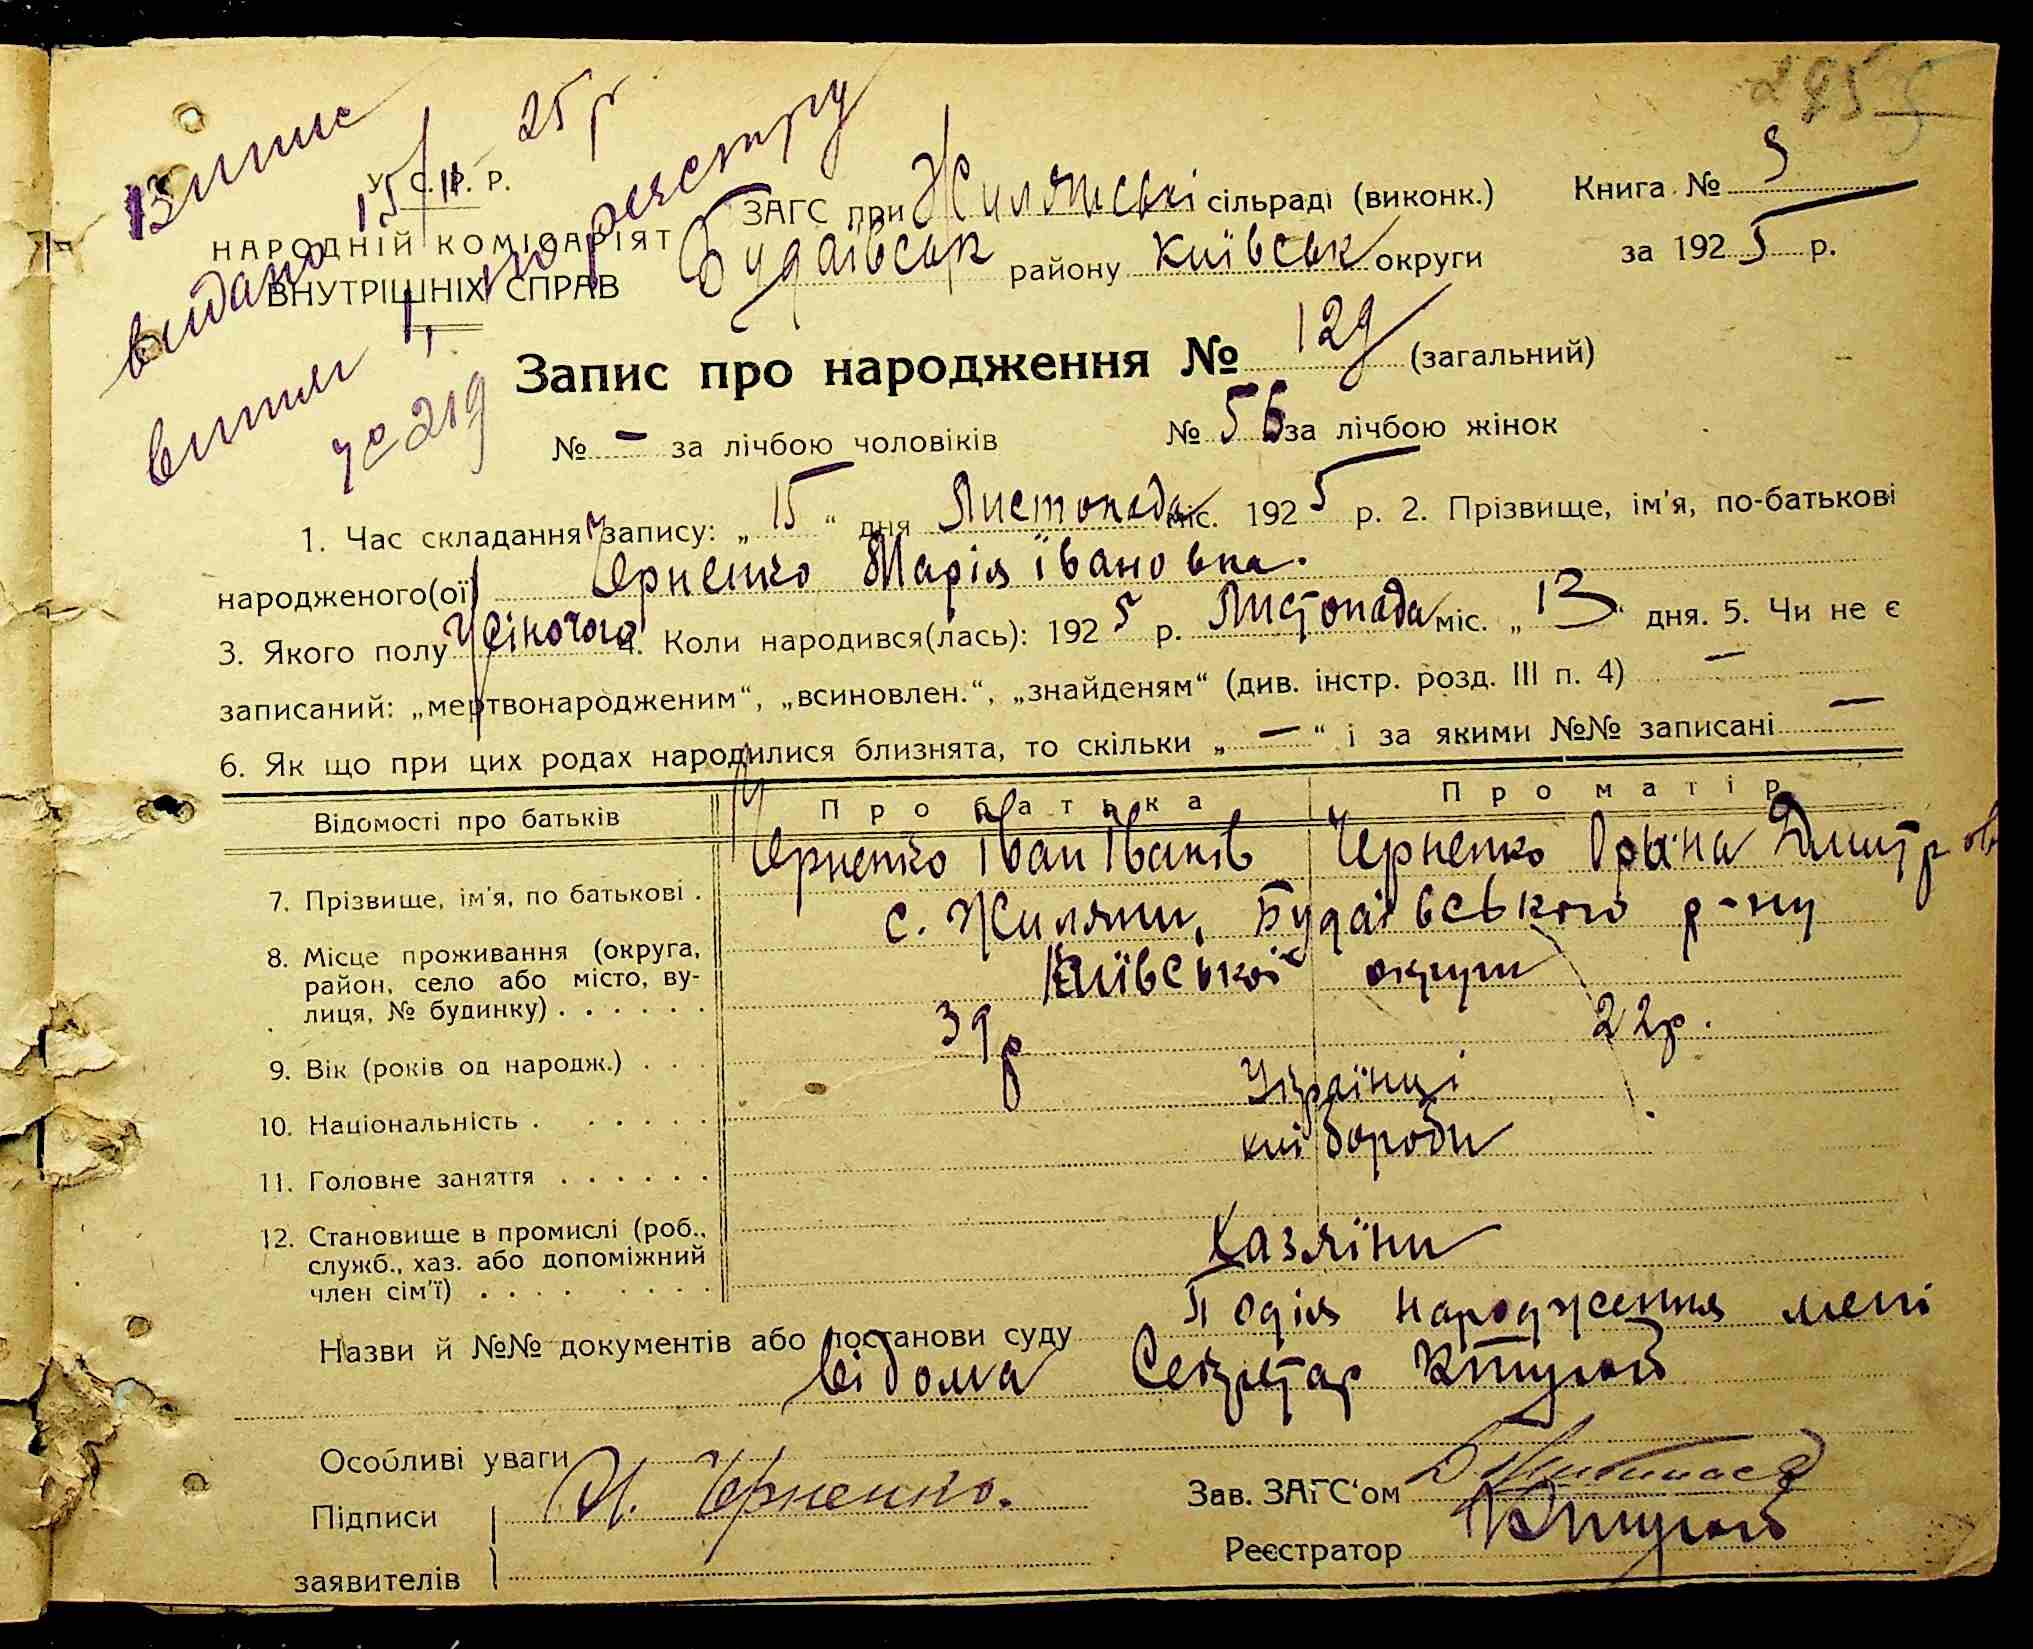 У. С. Р. Р.
НАРОДНІЙ КОМІСАРІЯТ
ВНУТРІШНІХ СПРАВ
видано 15/11 25 р
витяг по реєстру
№ 219
ЗАГС при Жилянські сільраді (виконк.) Книга № 3
Будаївськ району Київськ округи за 1925 р.
Запис про народження № 129 (загальний)
№ – за лічбою чоловіків № 56 за лічбою жінок
1. Час складання запису: „15“ дня Листопада міс. 1925 р. 2. Прізвище, ім'я, по-батькові
народженого(ої) Черненко Марія Івановна.
3. Якого полу Жіночого 4. Коли народився(лась): 1925 р. Листопада міс. „13“ дня. 5. Чи не є
записаний: „мертвонародженим“, „всиновлен.“, „знайденям“ (див. інстр. розд. III п. 4) –
6. Як що при цих родах народилися близнята, то скільки „–“ і за якими №№ записані –
Відомості про батьків Про батька Про матір
7. Прізвище, ім'я, по батькові . Черненко Іван Іванів Черненко Орина Дмитров
8. Місце проживання (округа, с. Жиляни, Будаівського р-ну
район, село або місто, ву- Київської округи
лиця, № будинку) . . . . . .
9. Вік (років од народж.) . . . 39 р 22 р.
10. Національність . . . . . . Українці
11. Головне заняття . . . . . . хлібороби
12. Становище в промислі (роб.,
служб., хаз. або допоміжний Хазяїни
член сім'ї) . . . . . . . .
Назви й №№ документів або постанови суду Подія народження мені
відома Секретар
Особливі уваги
Підписи И. Черненко. Зав. ЗАГС'ом
заявителів Реєстратор